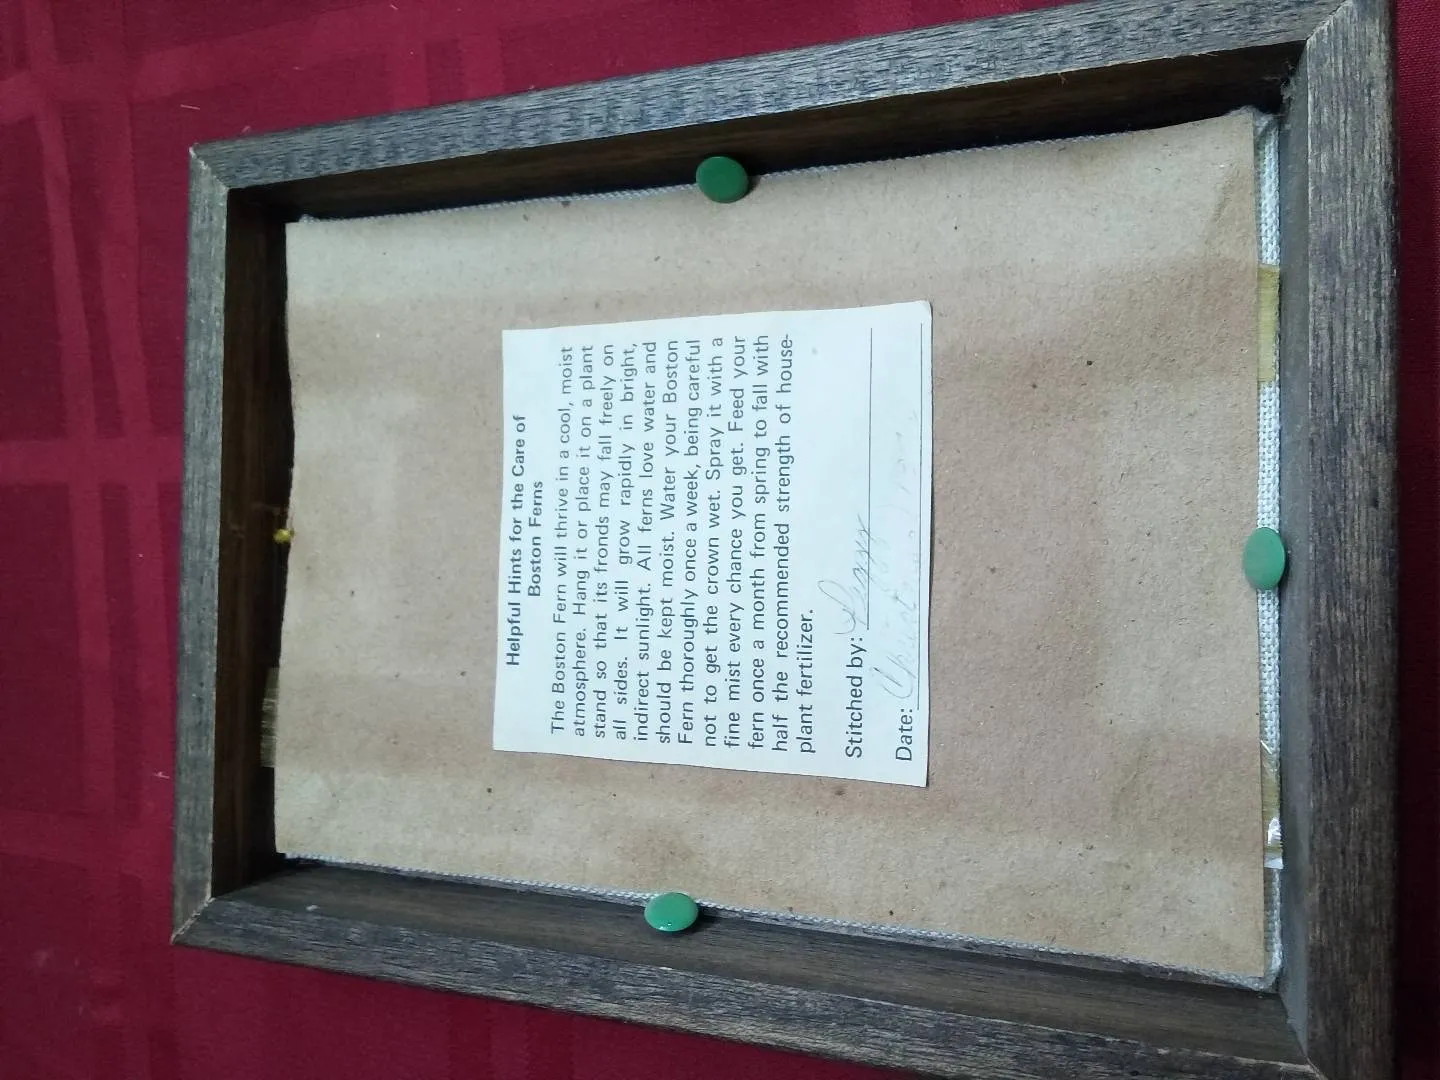 Helpful Hints for the Care of
Boston Ferns
The Boston Fern will thrive in a cool, moist
atmosphere. Hang it or place it on a plant
stand so that its fronds may fall freely on
all sides. It will grow rapidly in bright,
indirect sunlight. All ferns love water and
should be kept moist. Water your Boston
Fern thoroughly once a week, being careful
not to get the crown wet. Spray it with a
fine mist every chance you get. Feed your
fern once a month from spring to fall with
half the recommended strength of house-
plant fertilizer.
Stitched by: Peggy
Date: